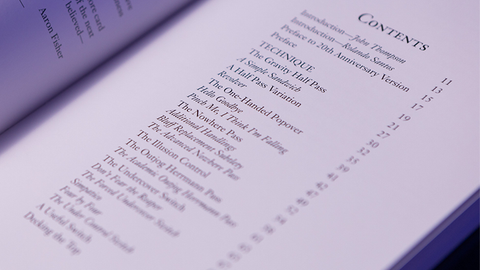 ore card
of the next
believed—
Aaron Fisher
CONTENTS
Introduction—John Thompson 11
Introduction—Rolando Santos 13
Preface to 20th Anniversary Version 15
Preface 17
TECHNIQUE
The Gravity Half Pass 19
A Simple Sandwich 21
A Half Pass Variation 27
Revolver 30
The One-Handed Popover 32
Hello Goodbye 35
Pinch Me, I Think I'm Falling
The Nowhere Pass
Additional Handlings
Bluff Replacement Subtlety
The Advanced Nowhere Pass
The Illusion Control
The Outjog Herrmann Pass
The Academic Outjog Herrmann Pass
The Undercover Switch
Don't Fear the Reaper
The Forced Undercover Switch
Simpatico
Four by Four
The Under Control Switch
A Useful Switch
Decking the Top